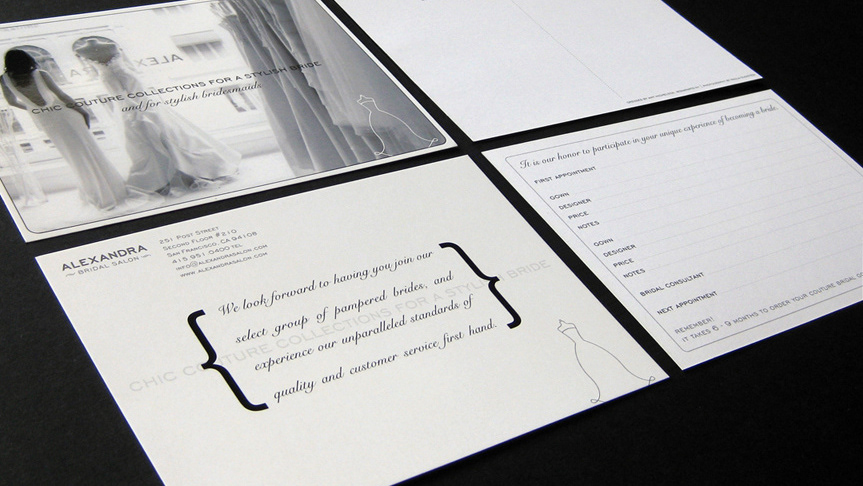 ALEXANDRA
CHIC COUTURE COLLECTIONS FOR A STYLISH BRIDE
and for stylish bridesmaids
It is our honor to participate in your unique experience of becoming a bride.
FIRST APPOINTMENT
GOWN
DESIGNER
PRICE
NOTES
GOWN
DESIGNER
PRICE
NOTES
BRIDAL CONSULTANT
NEXT APPOINTMENT
REMEMBER!
IT TAKES 6 - 9 MONTHS TO ORDER YOUR COUTURE BRIDAL
ALEXANDRA
BRIDAL SALON
251 POST STREET
SECOND FLOOR #210
SAN FRANCISCO, CA 94108
415 951 0400 TEL
INFO@ALEXANDRASALON.COM
WWW.ALEXANDRASALON.COM
{ We look forward to having you join our
select group of pampered brides, and
experience our unparalleled standards of
quality and customer service first hand. }
CHIC COUTURE COLLECTIONS FOR A STYLISH BRIDE